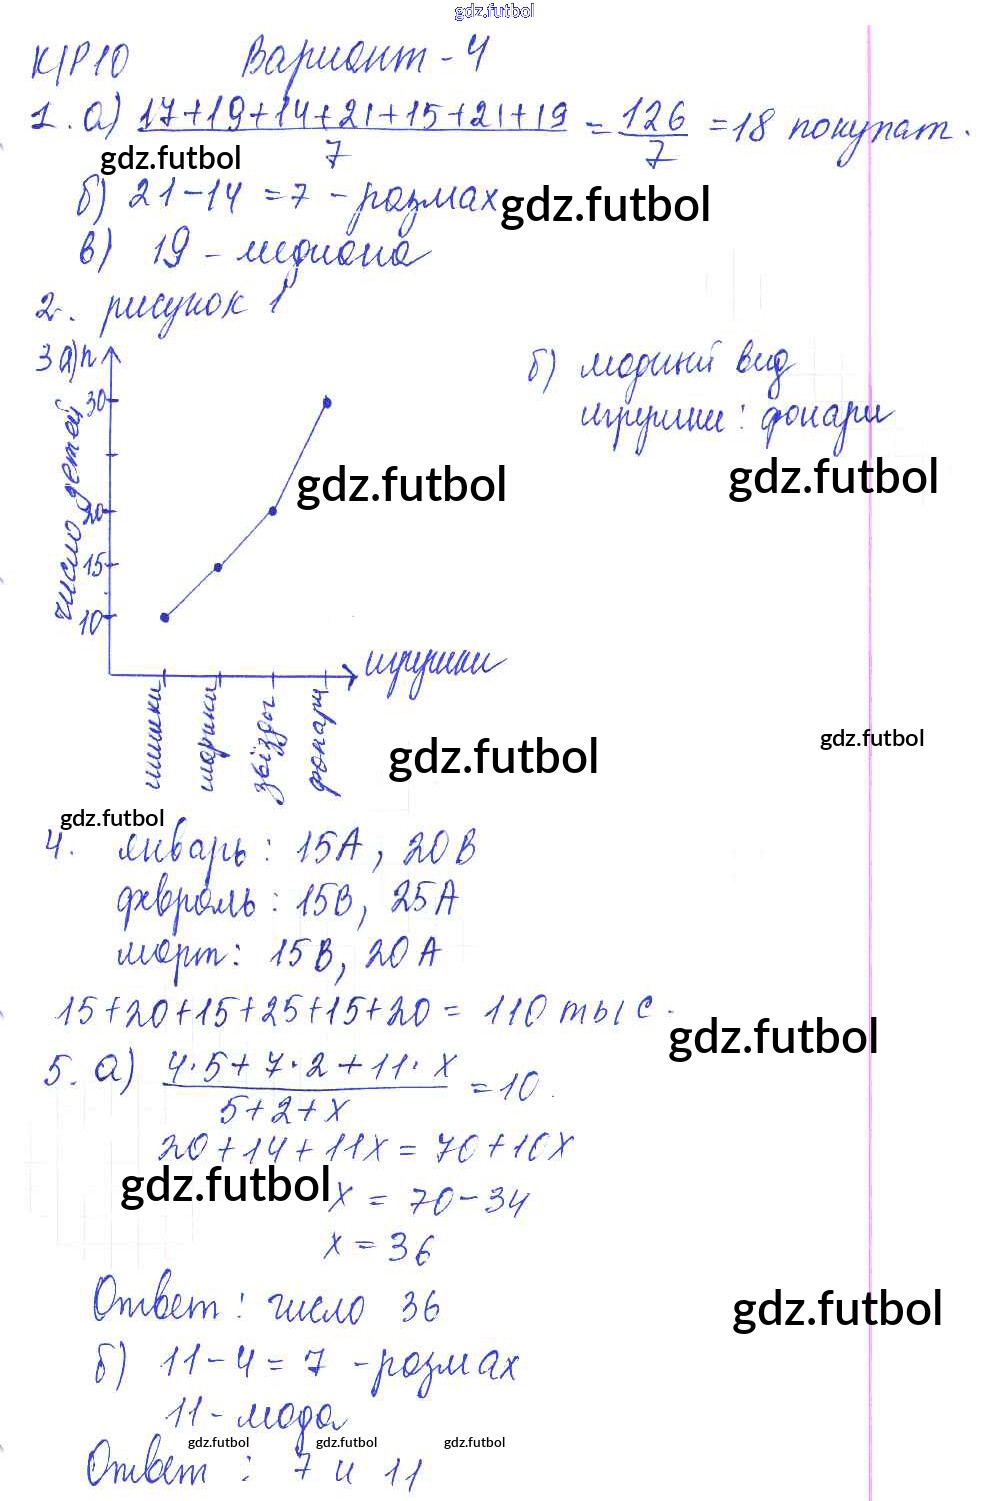 gdz.futbol
К/Р10 Вариант - 4
1. а) 17+19+14+21+15+21+19 / 7 = 126 / 7 = 18 покупат.
gdz.futbol
б) 21-14 = 7 - размах
gdz.futbol
в) 19 - медиана
2. рисунок 1
3 а) n
б) модный вид
игрушки: фонари
число детей
30
20
15
10
gdz.futbol
gdz.futbol
игрушки
шишки
шарики
звёзды
фонари
gdz.futbol
gdz.futbol
gdz.futbol
4. январь: 15А, 20В
февраль: 15В, 25А
март: 15В, 20А
15+20+15+25+15+20 = 110 тыс.
gdz.futbol
5. а) 4·5+7·2+11·х / 5+2+х = 10.
20+14+11х = 70+10х
gdz.futbol
х = 70-34
х = 36
Ответ: число 36
gdz.futbol
б) 11-4 = 7 - размах
11 - мода
gdz.futbol gdz.futbol gdz.futbol
Ответ: 7 и 11